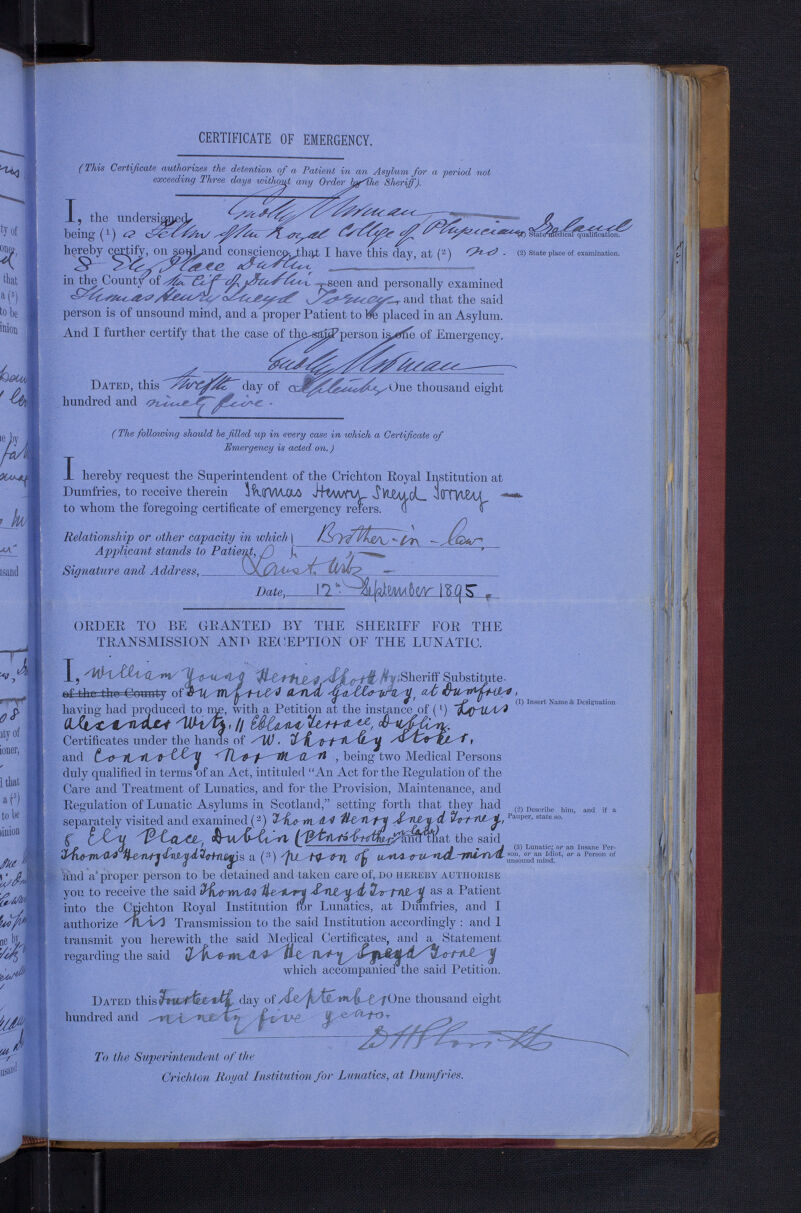 CERTIFICATE OF EMERGENCY.
(This Certificate authorizes the detention of a Patient in an Asylum for a period not
exceeding Three days without any Order by the Sheriff).
I, the undersigned, Conolly Norman
being (1) a Fellow of the Royal College of Physicians Ireland
(1) State medical qualification.
hereby certify, on soul and conscience, that I have this day, at (2) no.
(2) State place of examination.
8 Ely Place Dublin
in the County of the City of Dublin seen and personally examined
Thomas Henry Sneyd Torney and that the said
person is of unsound mind, and a proper Patient to be placed in an Asylum.
And I further certify that the case of the said person is one of Emergency.
Conolly Norman
DATED, this twelfth day of September One thousand eight
hundred and ninety five.
(The following should be filled up in every case in which a Certificate of
Emergency is acted on.)
I hereby request the Superintendent of the Crichton Royal Institution at
Dumfries, to receive therein Thomas Henry Sneyd Torney
to whom the foregoing certificate of emergency refers.
Relationship or other capacity in which
Applicant stands to Patient, Brother-in-law,
Signature and Address,
Date, 12th September 1895.
ORDER TO BE GRANTED BY THE SHERIFF FOR THE
TRANSMISSION AND RECEPTION OF THE LUNATIC.
I, William Young Sheriff Substitute
of the the County of Dumfries and Galloway, at Dumfries,
having had produced to me, with a Petition at the instance of (1) Louis
(1) Insert Name & Designation
Alexander Witz, 11 Eblana Terrace, Dublin.
Certificates under the hands of W. Thornley Stoker,
and Connolly Norman, being two Medical Persons
duly qualified in terms of an Act, intituled "An Act for the Regulation of the
Care and Treatment of Lunatics, and for the Provision, Maintenance, and
Regulation of Lunatic Asylums in Scotland," setting forth that they had
separately visited and examined (2) Thomas Henry Sneyd Torney,
(2) Describe him, and if a
Pauper, state so.
8 Ely Place, Dublin (Ptnrs brother in law) and that the said
Thomas Henry Sneyd Torney is a (3) person of unsound mind
(3) Lunatic; or an Insane Per-
son, or an Idiot, or a Person of
unsound mind.
and a proper person to be detained and taken care of, DO HEREBY AUTHORISE
you to receive the said Thomas Henry Sneyd Torney as a Patient
into the Crichton Royal Institution for Lunatics, at Dumfries, and I
authorize his Transmission to the said Institution accordingly: and I
transmit you herewith the said Medical Certificates, and a Statement
regarding the said Thomas Henry Sneyd Torney
which accompanied the said Petition.
DATED this Fourteenth day of September One thousand eight
hundred and ninety five years.
To the Superintendent of the
Crichton Royal Institution for Lunatics, at Dumfries.